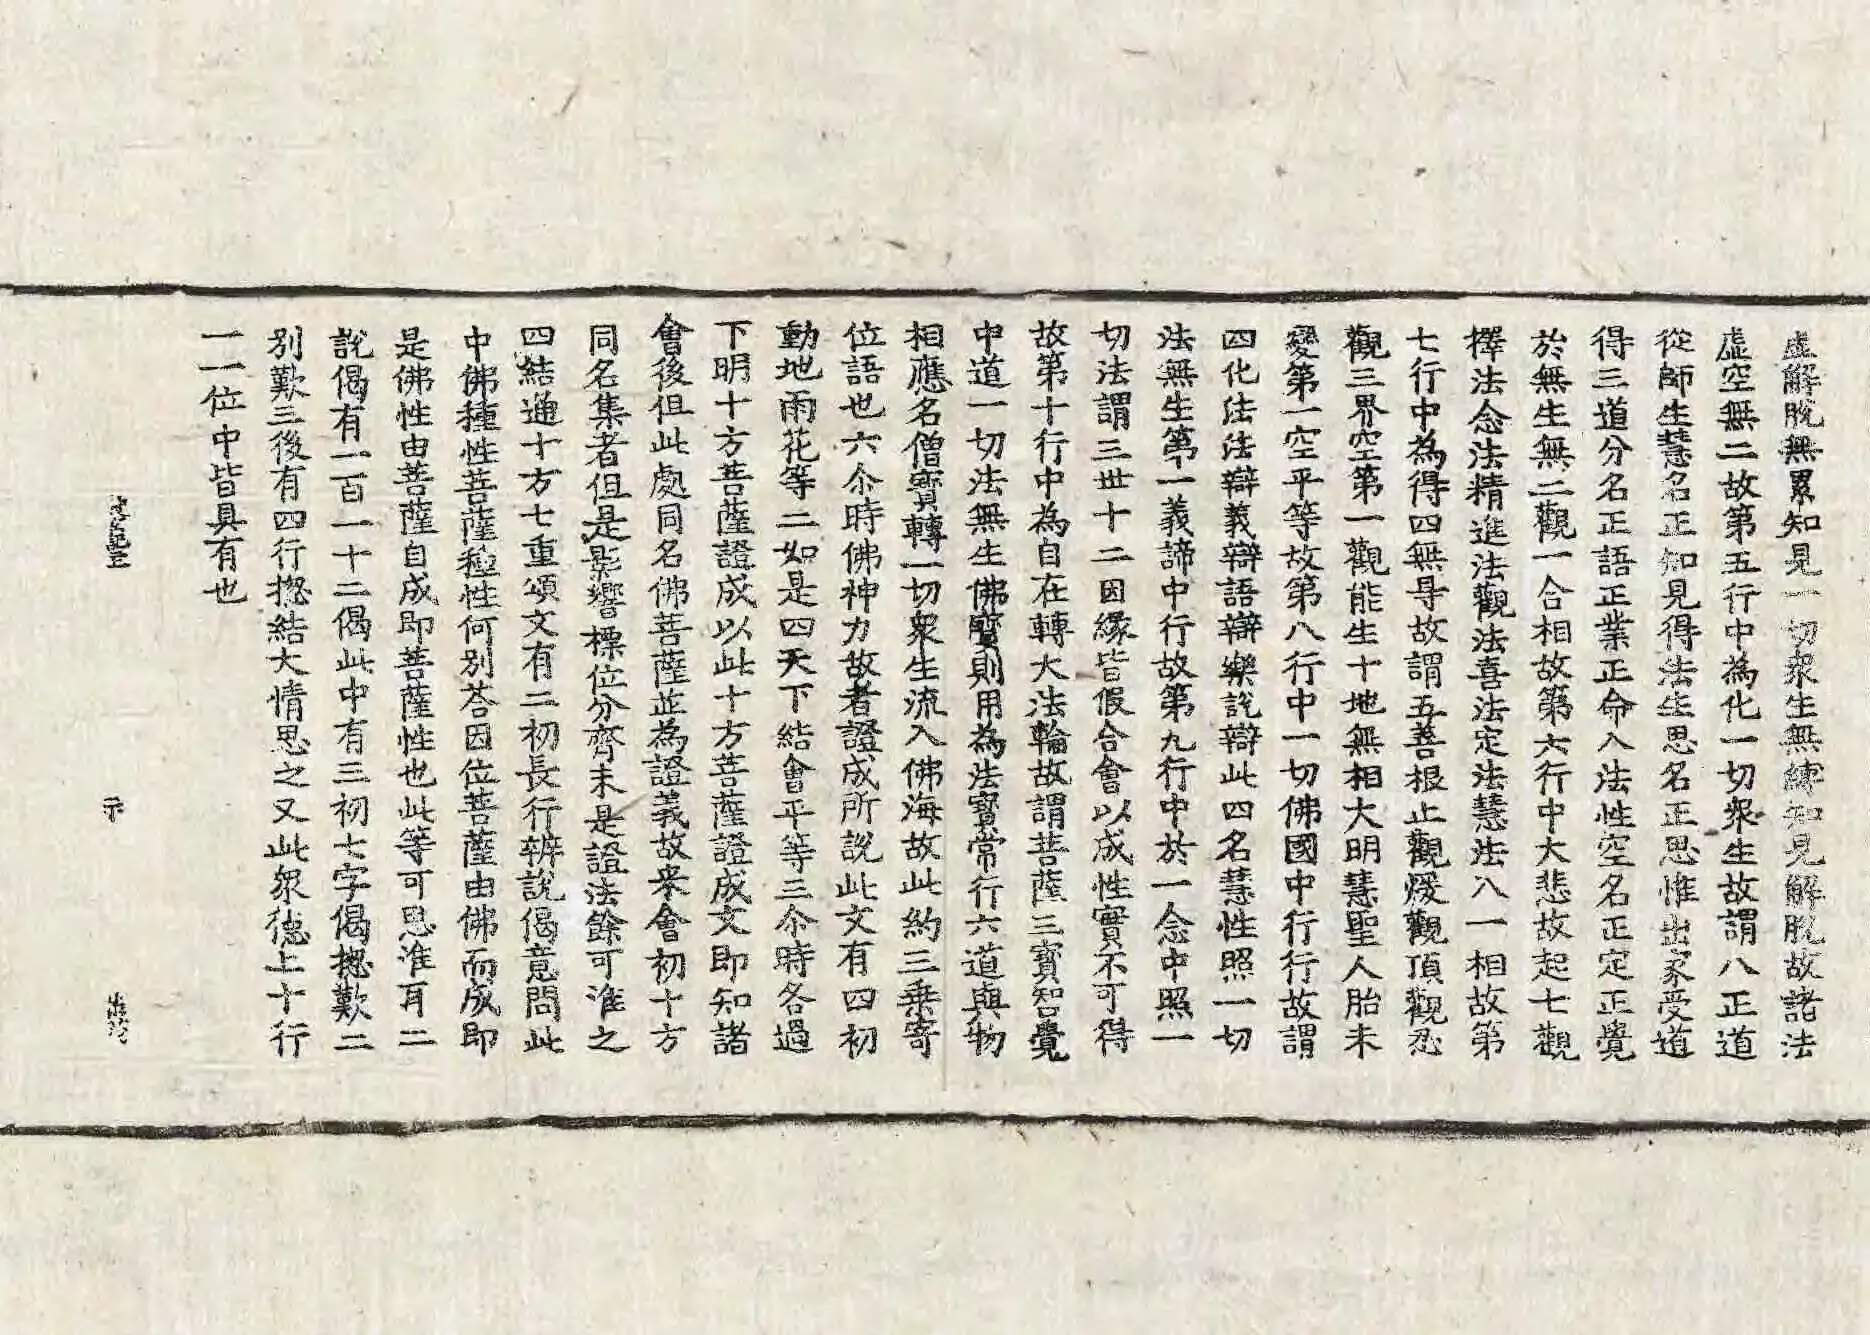 虛解脫無累知見一切衆生無縛知見解脫故諸法
虛空無二故第五行中為化一切衆生故謂八正道
從師生慧名正知見得法生思名正思惟出家受道
得三道分名正語正業正命入法性空名正定正覺
於無生無二觀一合相故第六行中大悲故起七觀
擇法念法精進法觀法喜法定法慧法八一相故第
七行中為得四無㝵故謂五善根止觀煖觀頂觀忍
觀三界空第一觀能生十地無相大明慧聖人胎未
變第一空平等故第八行中一切佛國中行行故謂
四化法法辯義辯語辯樂說辯此四名慧性照一切
法無生第一義諦中行故第九行中於一念中照一
切法謂三世十二因緣皆假合會以成性實不可得
故第十行中為自在轉大法輪故謂菩薩三寶知覺
中道一切法無生佛寶則用為法寶常行六道與物
相應名僧寶轉一切衆生流入佛海故此約三乗寄
位語也六尒時佛神力故者證成所說此文有四初
動地雨花等二如是四天下結會平等三尒時各過
下明十方菩薩證成以此十方菩薩證成文即知諸
會後但此處同名佛菩薩並為證義故来會初十方
同名集者但是影響標位分齊未是證法餘可准之
四結通十方七重頌文有二初長行辨說偈意問此
中佛種性菩薩種性何別荅因位菩薩由佛而成即
是佛性由菩薩自成即菩薩性也此等可思准耳二
說偈有一百一十二偈此中有三初七字偈揔歎二
別歎三後有四行揔結大情思之又此衆德上十行
一一位中皆具有也
示